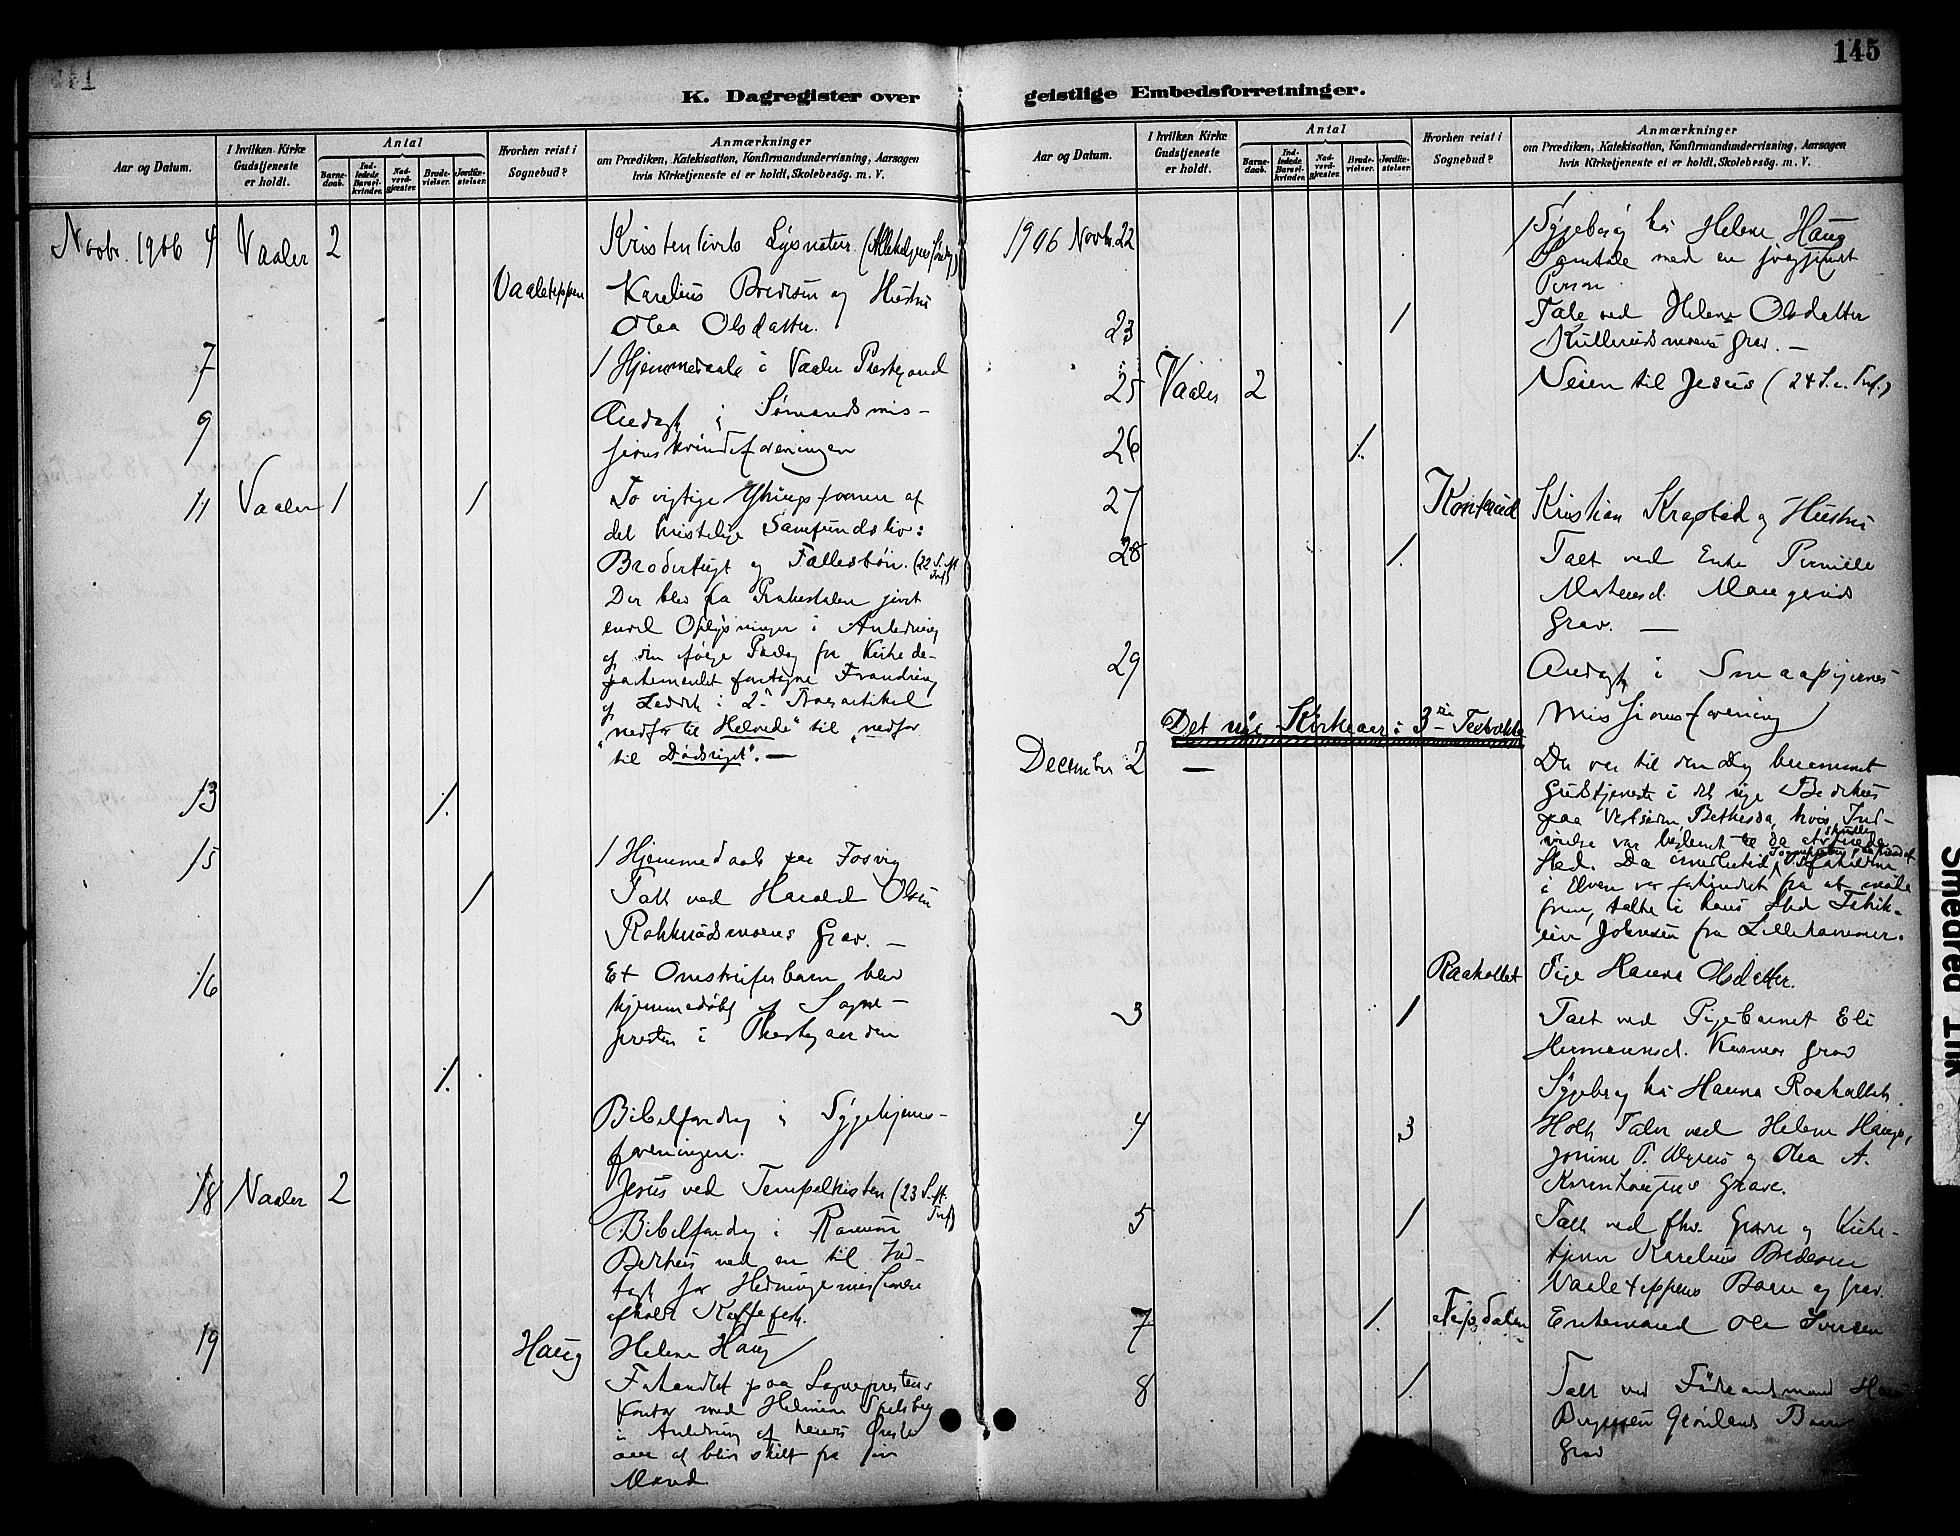 145
K. Dagregister over geistlige Embedsforretninger.
Aar og Datum.
I hvilken Kirke Gudstjeneste er holdt.
Antal
Barne-daab.
Ind-ledede Barsel-kvinder.
Nad-verd-gjæster.
Brude-vielser.
Jordfæ-stelser.
Hvorhen reist i Sognebud?
Anmærkninger
om Prædiken, Katekisation, Konfirmandundervisning, Aarsagen
hvis Kirketjeneste ei er holdt, Skolebesög. m. V.
Novbr. 1906 4 Vaaler 2 Kristenlivets Lysnatur
Vaaleteppen Karelius Bredesen og Hustru
Olea Olsdatter.
7 1 Hjemmedaab i Vaaler Prestegaard
9 Andagt i Sømandsmis-
sionskvindeforeningen
11 Vaaler 1 1 To vigtige Ytringsformer af
det kristelige Samfundsliv:
Brodertugt og Fællesbøn. (22 S. e. Tref.)
Der blev fra Prækestolen givet
endel Oplysninger i Anledning
af den ifølge Paalæg fra Kirkede-
partementet foretagne Forandring
af Leddet i 2den Trosartikel
"nedfor til Helvede" til "nedfor
til Dødsriget". —
13 1.
15 1 Hjemmedaab paa Fosvig
1 Talt ved Harald Olsen
Rokknæsmoens Grav. —
16 Et Omstreiferbarn blev
hjemmedøbt af Sogne-
presten i Prestegaarden
1.
Bibelforedrag i Sygehjems-
foreningen.
18 Vaaler 2 Jesus ved Tempelkisten (23 S. e. Tref.)
Bibelforedrag i
Bedehus ved en til Ind-
tægt for Hedningemissionen
afholdt Kaffefest.
19 Haug Helene Haug
Forhandlet paa Sogneprestens
Kontor med Helmine
i Anledning af hendes Ønske
om at blive skilt fra sin
Mand
Aar og Datum.
I hvilken Kirke Gudstjeneste er holdt.
Antal
Barne-daab.
Ind-ledede Barsel-kvinder.
Nad-verd-gjæster.
Brude-vielser.
Jordfæ-stelser.
Hvorhen reist i Sognebud?
Anmærkninger
om Prædiken, Katekisation, Konfirmandundervisning, Aarsagen
hvis Kirketjeneste ei er holdt, Skolebesög. m. V.
1906 Novbr. 22 Sygebesøg hos Helene Haug
Samtale med en
Person.
23 1 Tale ved Helene Olsdatter
Kullerudsmoens Grav. —
25 Vaaler 2 Veien til Jesus (24 S. e. Tref.)
26 1.
27 Konterud Kristian Krapstad og Hustru
28 1. Talt ved Enke Pernille
Mathisd. Maugeruds
Grav. —
29 Andagt i Smaapigernes
Missionsforening
Det nye Kirkeaar: 3die Textrække
December 2 — Der var til den Dag berammet
Gudstjeneste i det nye Bedehus
paa Vestsiden Bethesda, hvis Ind-
vielse var bestemt til da at skulle finde
Sted. Da imidlertid Sognepresten
i Elven var forhindret fra at møde
frem, talte i hans Sted
Johnsen fra Lillehammer.
Raaholtet Pige Hanna Olsdatter.
3 1 Talt ved Pigebarnet Eli
Hermannsd. Kasmos Grav
Sygebesøg hos Hanna Raaholtet.
4 3 Holdt Taler ved Helene Haugs,
Jonine P. Myrens og Olea A.
Kornhaugens Grave.
5 1 Talt ved fhv. Graver og Kirke-
tjener Karelius Bredesen
Vaaleteppens Baare og Grav.
7 1. Enkemand Ole Iversen
8 1 Talt ved Føderaadsmand
Grønlands Baare
Grav
Smedred Ink